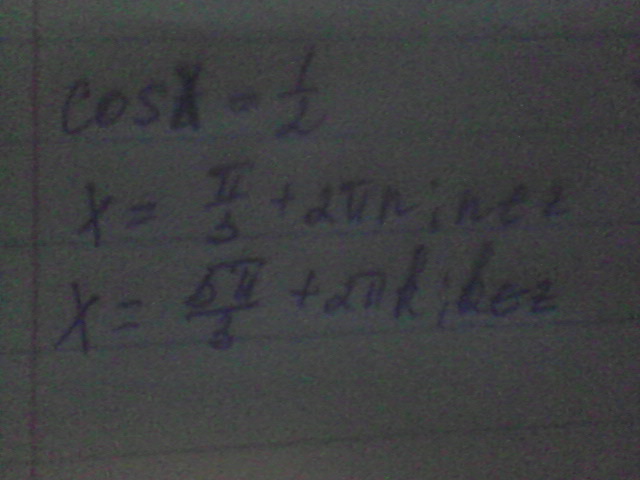 cos x = 1/2
x = π/3 + 2πn; n ∈ z
x = 5π/3 + 2πk; k ∈ z